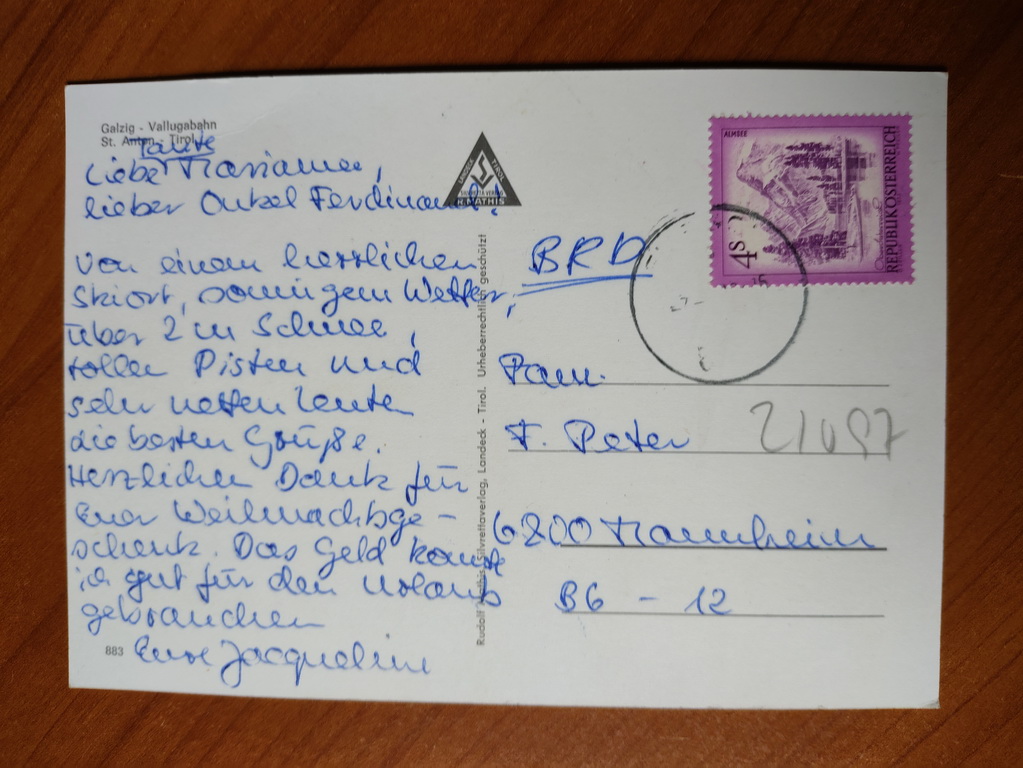 Galzig - Vallugabahn
St. Anton - Tirol
Tante
Liebe Marianne,
lieber Onkel Ferdinand!
Von einem herrlichen
Skiort, sonnigem Wetter,
über 2 m Schnee,
tollen Pisten und
sehr netten Leuten
die besten Grüße.
Herzlichen Dank für
Euer Weihnachtsge-
schenk. Das Geld konnte
ich gut für den Urlaub
gebrauchen
Eure Jacqueline
883
TIROL
R. MATHIS
Rudolf Mathis, Silvrettaverlag, Landeck - Tirol. Urheberrechtlich geschützt
ALMSEE
4 S
REPUBLIK ÖSTERREICH
BRD
Fam.
F. Peter
6800 Mannheim
B6 - 12